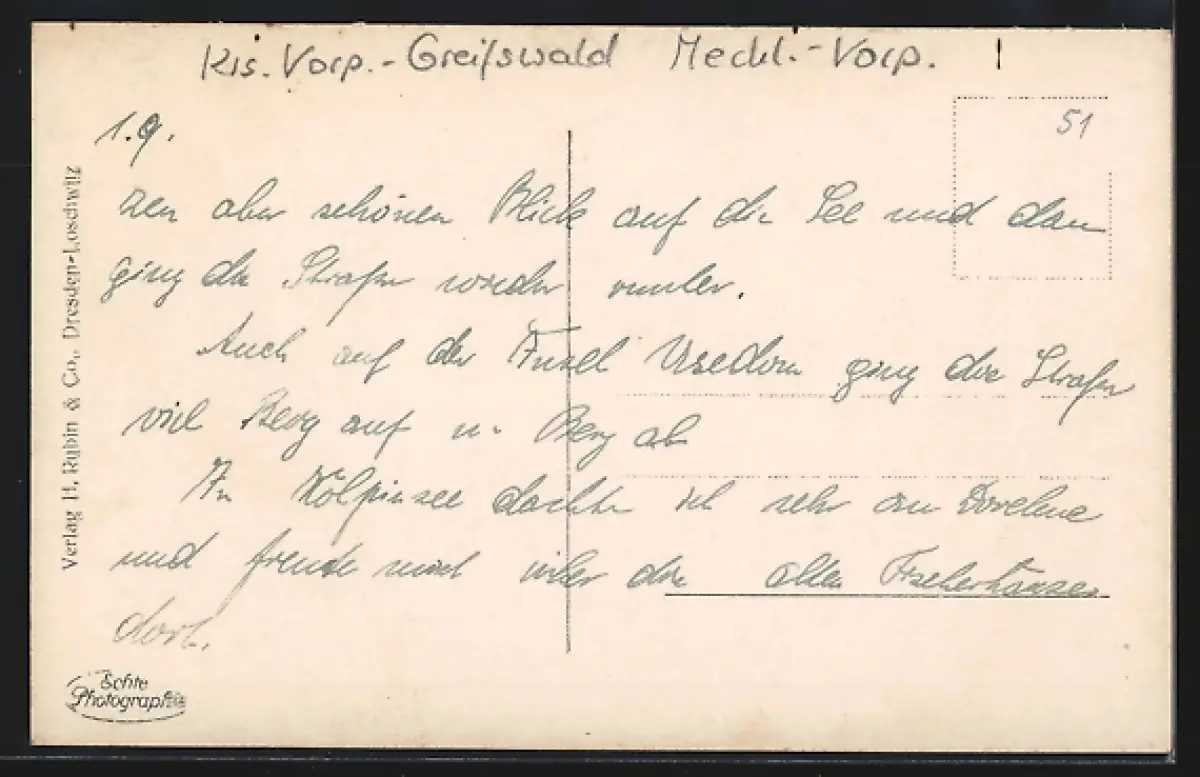 Krs. Vorp.-Greifswald Meckl.-Vorp.
51
1.9.
zen aber schönen Blick auf die See und dann
ging die Straße wieder runter.
Auch auf der Insel Usedom ging die Straße
viel Berg auf u. Berg ab
In Kölpinsee dachte ich sehr an
und freute mich über die alten Fischerhäuser
dort.
Verlag H. Rubin & Co., Dresden-Loschwitz
Echte
Photographie